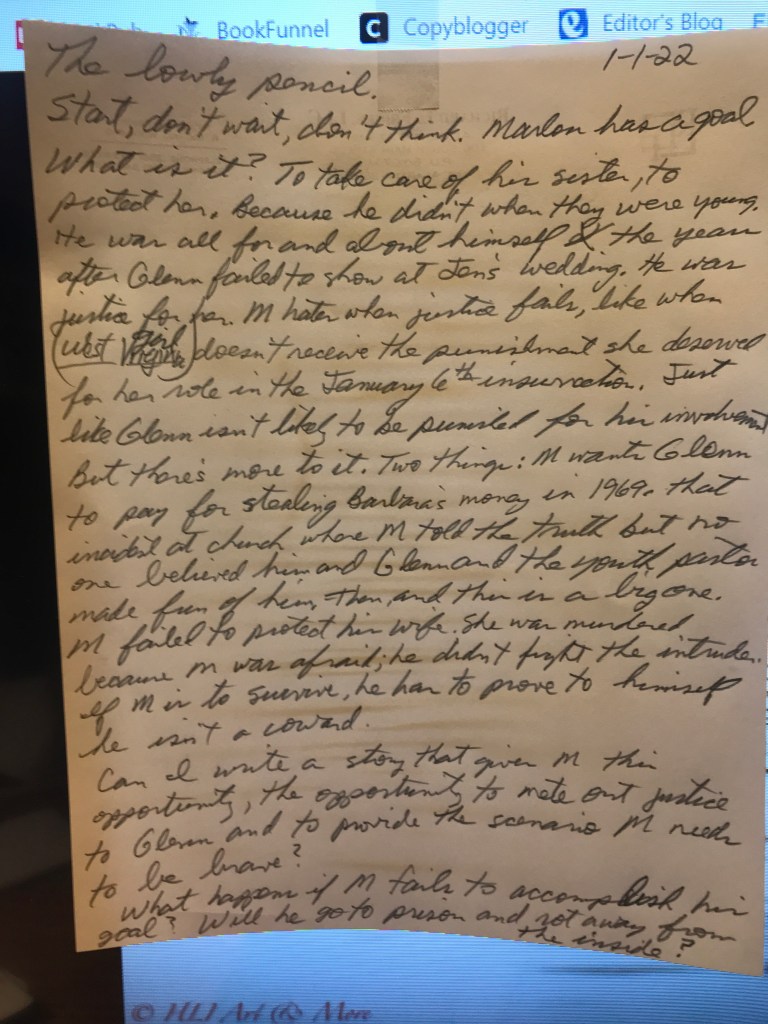 BookFunnel C Copyblogger Editor's Blog
1-1-22
The lowly pencil.
Start, don't wait, don't think. Marlon has a goal
What is it? To take care of his sister, to
protect her. Because he didn't when they were young.
He was all for and about himself & the year
after Glenn failed to show at Jen's wedding. He was
justice for her. M hates when justice fails, like when
West Virginia girl doesn't receive the punishment she deserved
for her role in the January 6th insurrection. Just
like Glenn isn't likely to be punished for his involvement
But there's more to it. Two things: M wants Glenn
to pay for stealing Barbara's money in 1969. that
incident at church where M told the truth but no
one believed him and Glenn and the youth pastor
made fun of him, then, and this is a big one.
M failed to protect his wife. She was murdered
because M was afraid; he didn't fight the intruder.
If M is to survive, he has to prove to himself
he isn't a coward.
Can I write a story that gives M this
opportunity, the opportunity to mete out justice
to Glenn and to provide the scenario M needs
to be brave?
What happens if M fails to accomplish his
goal? Will he go to prison and rot away from
the inside?
© HLI Art & More